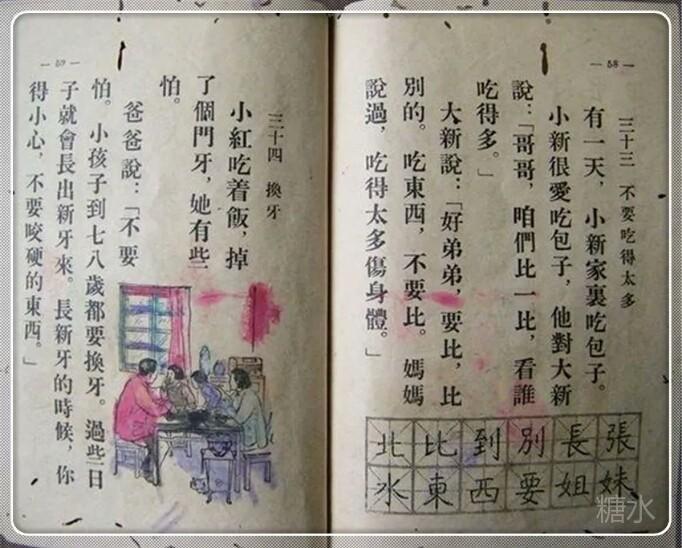 — 58 —
三十三 不要吃得太多
有一天，小新家裏吃包子。
小新很愛吃包子，他對大新
說：「哥哥，咱們比一比，看誰
吃得多。」
大新說：「好弟弟，要比，比
別的。吃東西，不要比。媽媽
說過，吃得太多傷身體。」
張長別到比北
妹姐要西東水
— 59 —
三十四 換牙
小紅吃着飯，掉
了個門牙，她有些
怕。
爸爸說：「不要
怕。小孩子到七八歲都要換牙。過些日
子就會長出新牙來。長新牙的時候，你
得小心，不要咬硬的東西。」
糖水